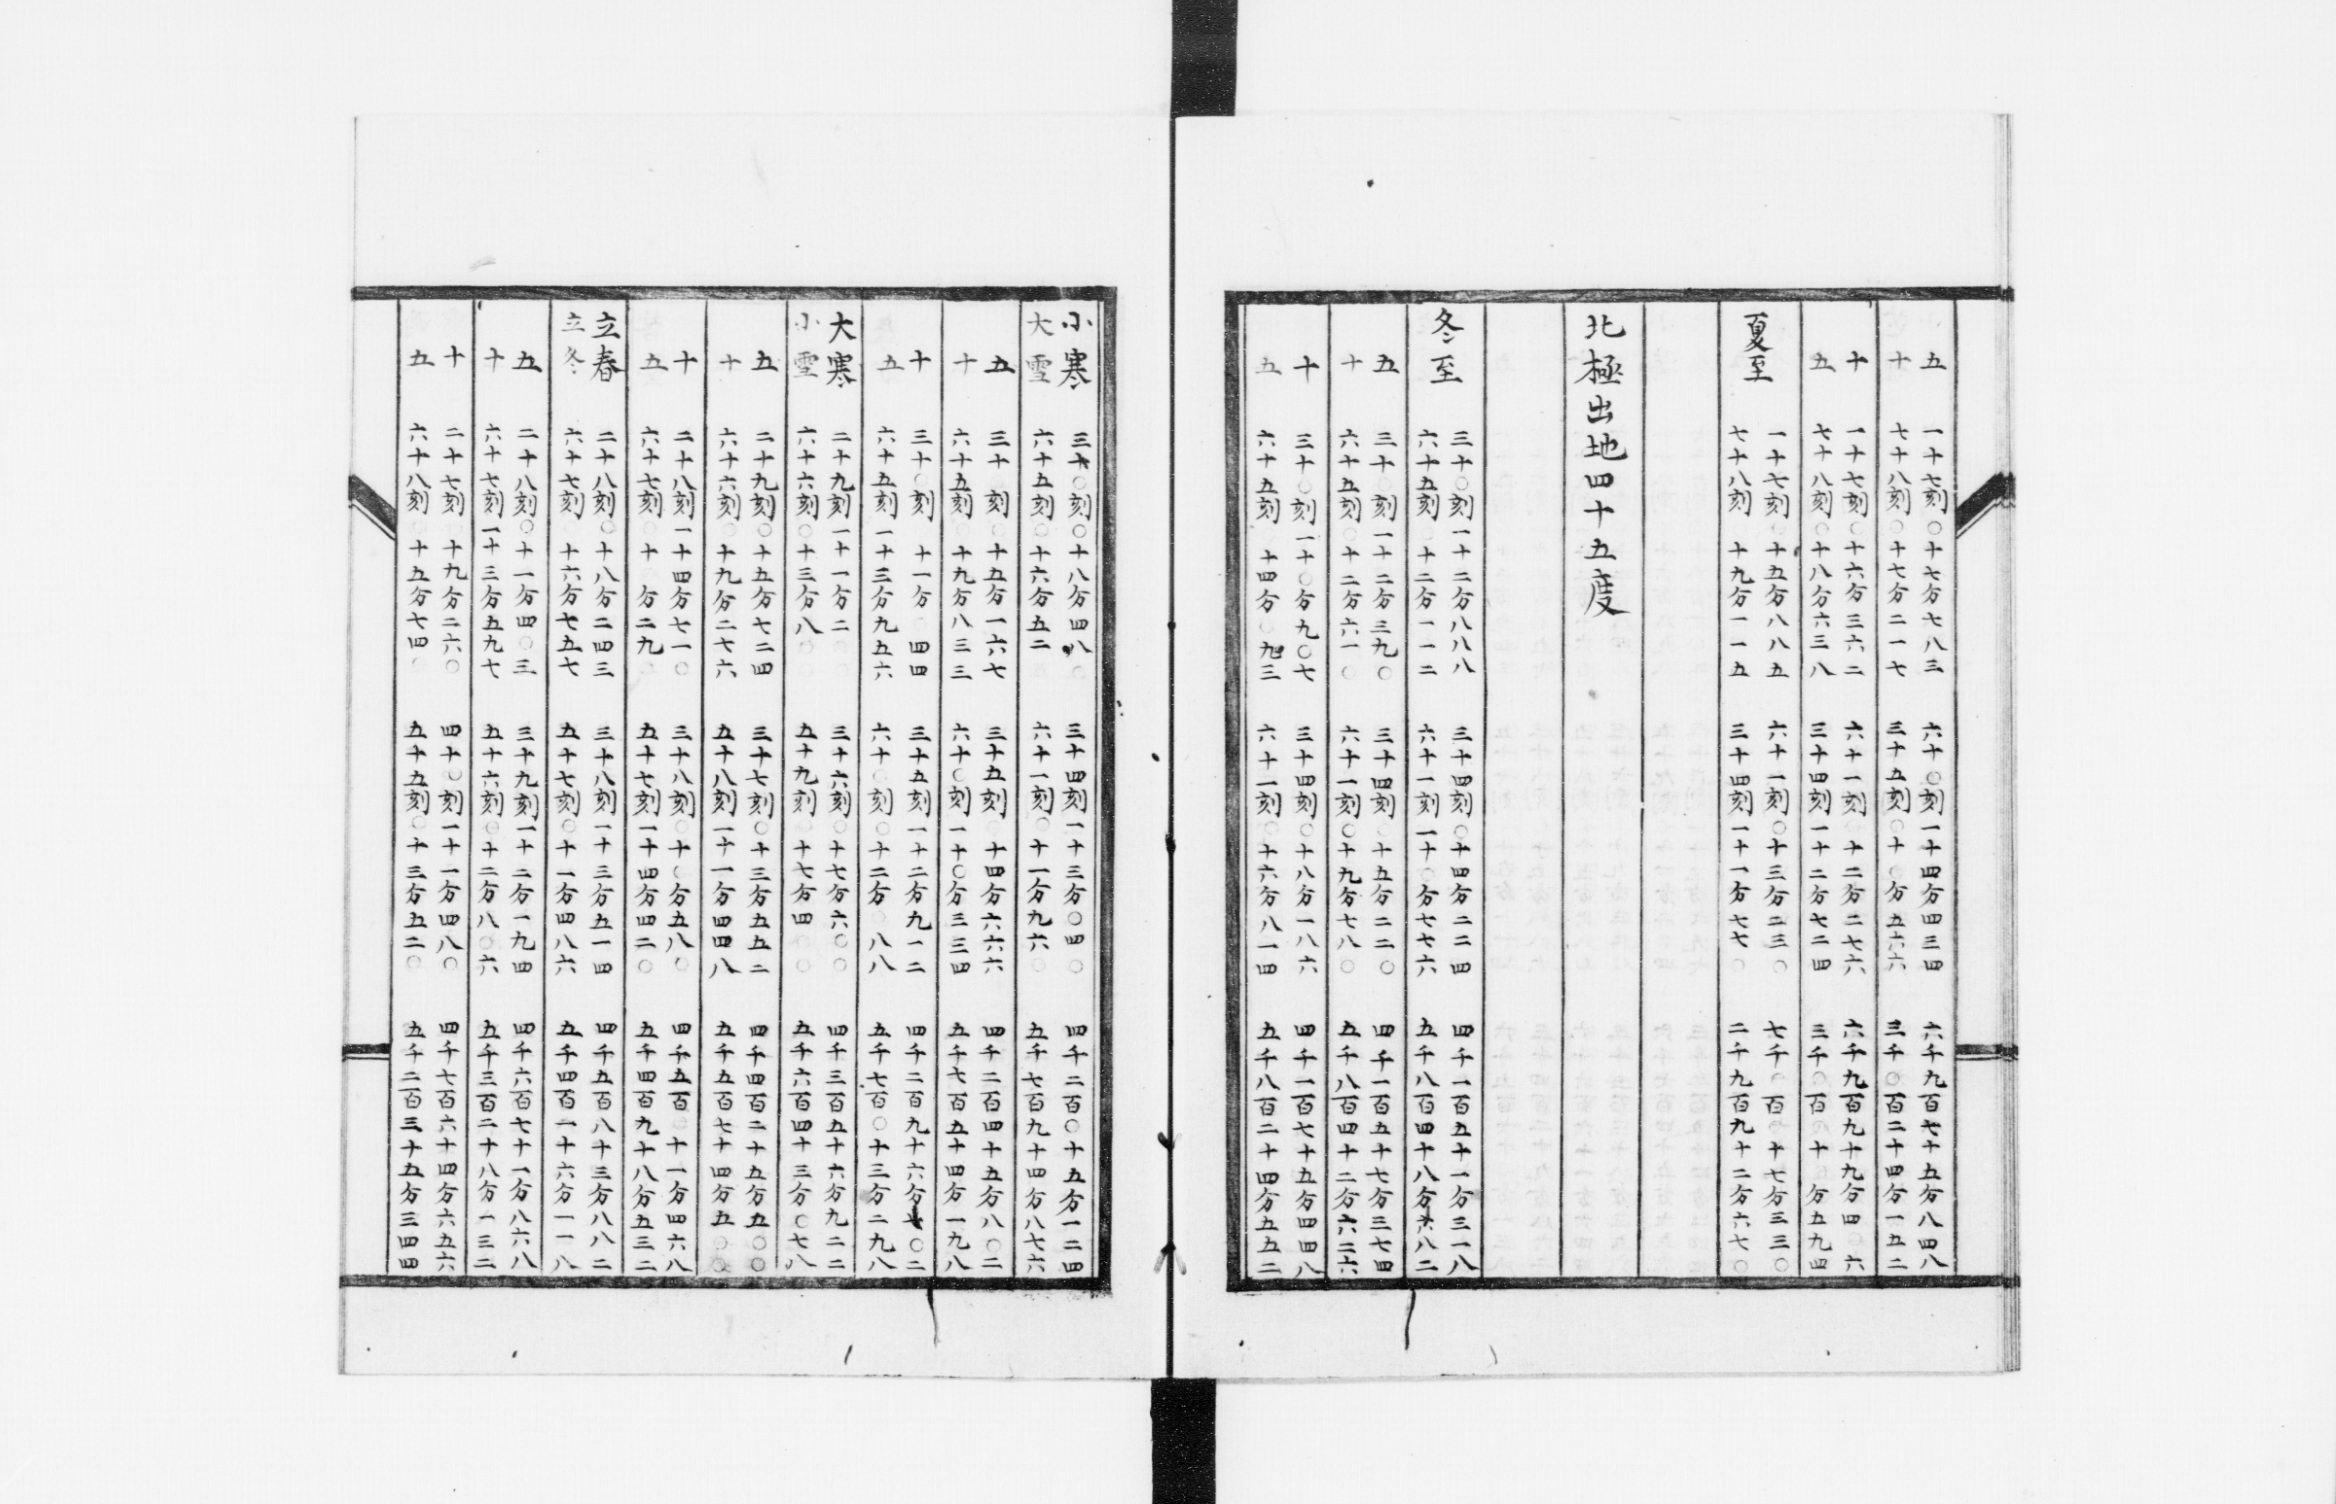 五 一十七刻〇十七分七八三 六十〇刻一十四分四三四 六千九百七十五分八四八
十 七十八刻〇十七分二一七 三十五刻〇十〇分五六六 三千〇百二十四分一五二
十 一十七刻〇十六分三六二 六十一刻 十二分二七六 六千九百九十九分四〇六
五 七十八刻〇十八分六三八 三十四刻一十二分七二四 三千〇百 十 分五九四
夏至 一十七刻 十五分八八五 六十一刻〇十三分二三〇 七千〇百〇十七分三三〇
七十八刻 十九分一一五 三十四刻一十一分七七〇 二千九百九十二分六七〇
北極出地四十五度
冬至 三十〇刻一十二分八八八 三十四刻〇十四分二二四 四千一百五十一分三一八
六十五刻〇十二分一一二 六十一刻一十〇分七七六 五千八百四十八分六八二
五 三十〇刻一十二分三九〇 三十四刻〇十五分二二〇 四千一百五十七分三七四
十 六十五刻〇十二分六一〇 六十一刻〇十九分七八〇 五千八百四十二分六二六
十 三十〇刻一十〇分九〇七 三十四刻〇十八分一八六 四千一百七十五分四四八
五 六十五刻〇十四分〇九三 六十一刻〇十六分八一四 五千八百二十四分五五二
小寒 三十〇刻〇十八分四八〇 三十四刻一十三分〇四〇 四千二百〇十五分一二四
大雪 六十五刻〇十六分五二 六十一刻〇十一分九六〇 五千七百九十四分八七六
五 三十 刻〇十五分一六七 三十五刻 十四分六六六 四千二百四十五分八〇二
十 六十五刻〇十九分八三三 六十〇刻一十〇分三三四 五千七百五十四分一九八
十 三十〇刻 十一分〇四四 三十五刻一十二分九一二 四千二百九十六分七〇二
五 六十五刻一十三分九五六 六十〇刻〇十二分〇八八 五千七百〇十三分二九八
大寒 二十九刻一十一分二〇〇 三十六刻〇十七分六〇〇 四千三百五十六分九二二
小雪 六十六刻〇十三分八〇〇 五十九刻〇十七分四〇〇 五千六百四十三分〇七八
五 二十九刻〇十五分七二四 三十七刻〇十三分五五二 四千四百二十五分五〇〇
十 六十六刻〇十九分二七六 五十八刻一十一分四四八 五千五百七十四分五〇〇
十 二十八刻一十四分七一〇 三十八刻〇十〇分五八〇 四千五百〇十一分四六八
五 六十七刻〇十〇分二九〇 五十七刻一十四分四二〇 五千四百九十八分五三二
立春 二十八刻〇十八分二四三 三十八刻一十三分五一四 四千五百八十三分八八二
立冬 六十七刻〇十六分七五七 五十七刻〇十一分四八六 五千四百一十六分一一八
五 二十八刻〇十一分四〇三 三十九刻一十二分一九四 四千六百七十一分八六八
十 六十七刻一十三分五九七 五十六刻〇十二分八〇六 五千三百二十八分一三二
十 二十七刻〇十九分二六〇 四十〇刻一十一分四八〇 四千七百六十四分六五六
五 六十八刻〇十五分七四〇 五十五刻〇十三分五二〇 五千二百三十五分三四四